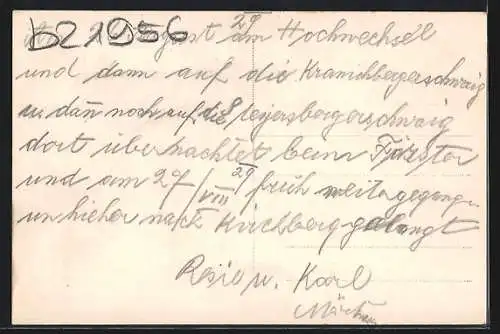 bZ 1956
August 29 am Hochwechsel
und dann auf die Kranichbergerschwaig
u. dan noch auf die Steyersbergerschwaig
dort übernachtet beim Förster
und am 29/VIII 29 früh weitergegangen
un hieher nach Kirchberg gelangt
Resi u. Karl